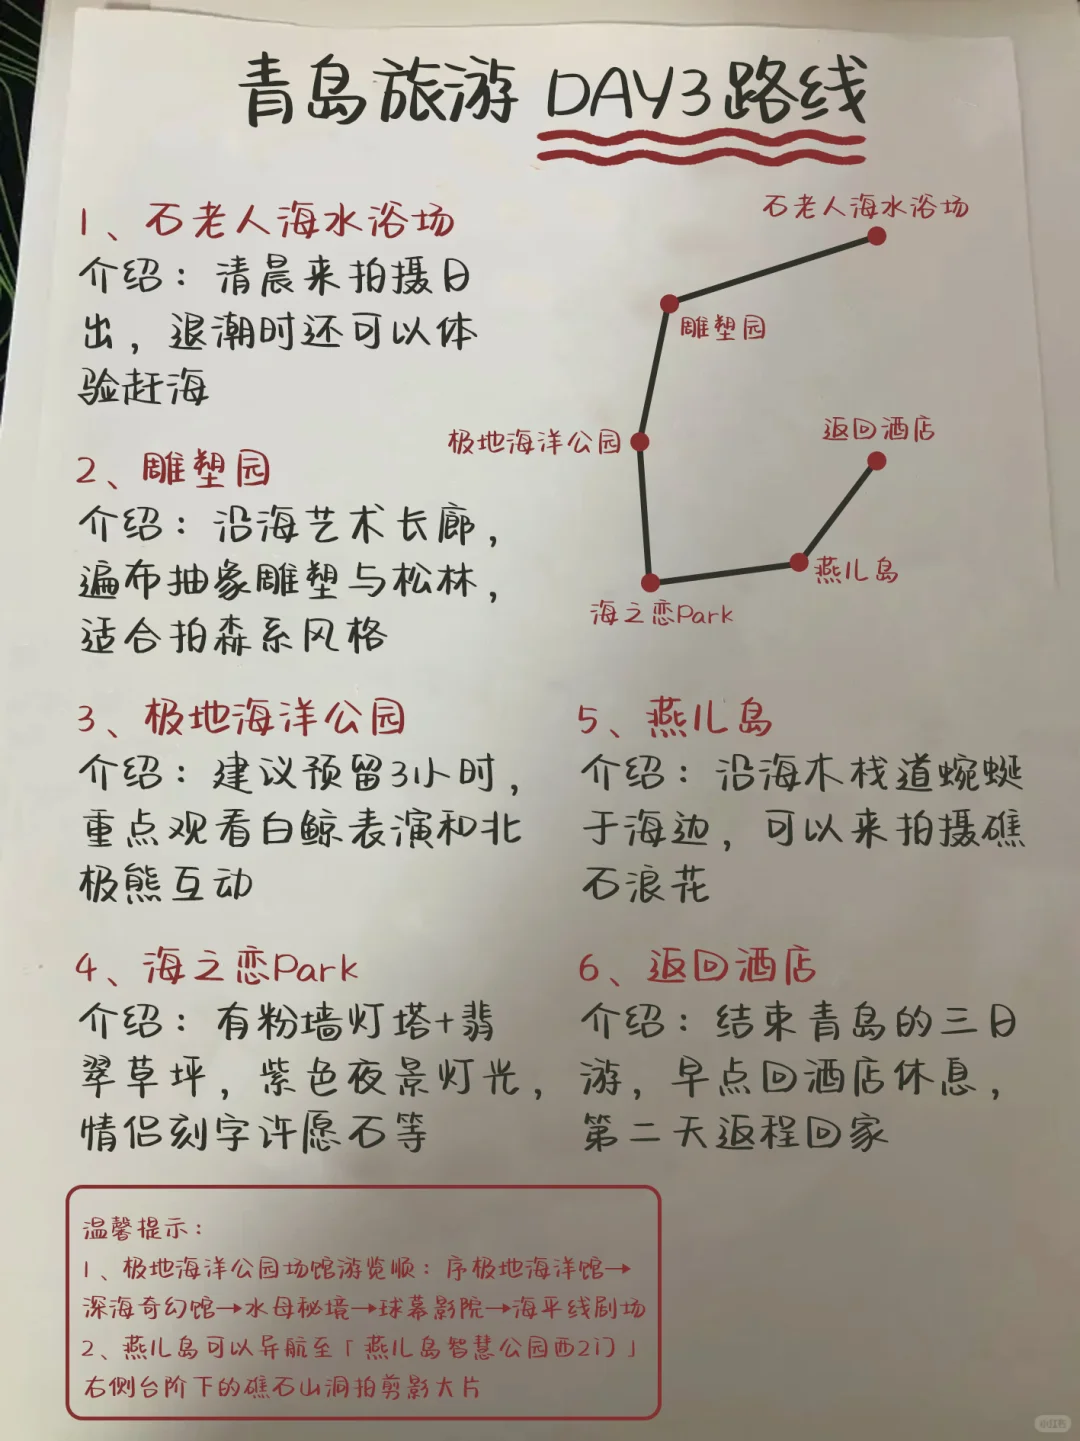 青岛旅游 DAY3路线
1、石老人海水浴场
介绍：清晨来拍摄日
出，退潮时还可以体
验赶海
2、雕塑园
介绍：沿海艺术长廊，
遍布抽象雕塑与松林，
适合拍森系风格
石老人海水浴场
雕塑园
极地海洋公园
返回酒店
燕儿岛
海之恋Park
3、极地海洋公园
介绍：建议预留3小时，
重点观看白鲸表演和北
极熊互动
4、海之恋Park
介绍：有粉墙灯塔+翡
翠草坪，紫色夜景灯光，
情侣刻字许愿石等
5、燕儿岛
介绍：沿海木栈道蜿蜒
于海边，可以来拍摄礁
石浪花
6、返回酒店
介绍：结束青岛的三日
游，早点回酒店休息，
第二天返程回家
温馨提示：
1、极地海洋公园场馆游览顺：序极地海洋馆→
深海奇幻馆→水母秘境→球幕影院→海平线剧场
2、燕儿岛可以导航至「燕儿岛智慧公园西2门」
右侧台阶下的礁石山洞拍剪影大片
小红书